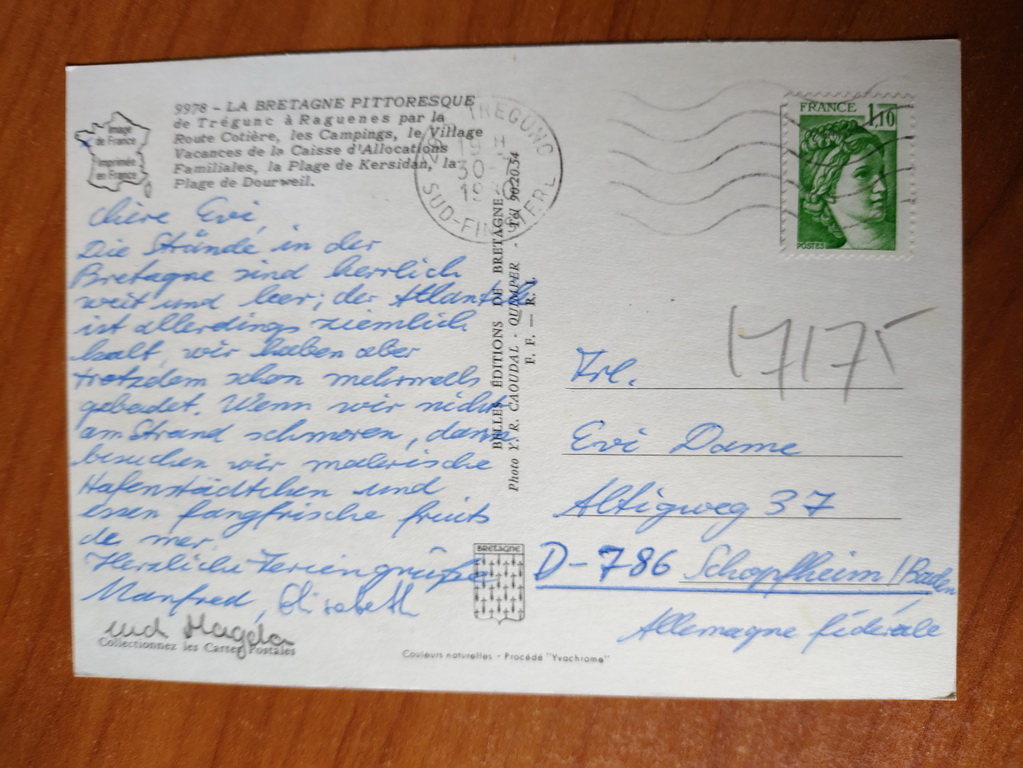 9978 - LA BRETAGNE PITTORESQUE
de Trégunc à Raguenes par la
Route Cotière, les Campings, le Village
Vacances de la Caisse d'Allocations
Familiales, la Plage de Kersidan, la
Plage de Dourweil.
Image
de France
Imprimée
en France
chère Evi,
Die Strände in der
Bretagne sind herrlich
weit und leer; der Atlantik
ist allerdings ziemlich
kalt, wir haben aber
trotzdem schon mehrmals
gebadet. Wenn wir nicht
am Strand schmoren, dann
besuchen wir malerische
Hafenstädtchen und
essen fangfrische fruits
de mer.
Herzliche Feriengrüße
Manfred, Elisabeth
und Magda
Collectionnez les Cartes Postales
TREGUNC
19 H
30-
19
SUD-FINISTERE
BELLES ÉDITIONS DE BRETAGNE
Photo Y. R. CAOUDAL - QUIMPER - Tél 90.20.34
F. F. — R. I.
FRANCE
1,10
POSTES
17175
Frl.
Evi Dame
Altigweg 37
D-786 Schopfheim/Baden
Allemagne fédérale
BRETAGNE
Couleurs naturelles - Procédé "Yvochrome"